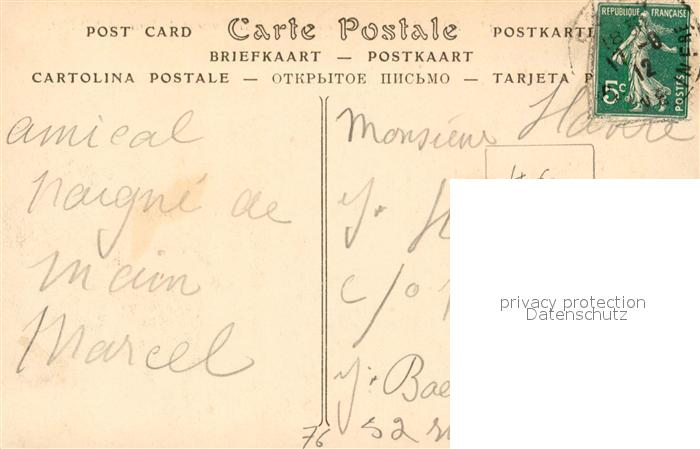 POST CARD Carte Postale POSTKART
BRIEFKAART — POSTKAART
CARTOLINA POSTALE — ОТКРЫТОЕ ПИСЬМО — TARJETA P
RÉPUBLIQUE FRANÇAISE
5c
POSTES
12
amical
de
main
Marcel
Monsieur
c/o
J. Bae
52 r
76
privacy protection
Datenschutz